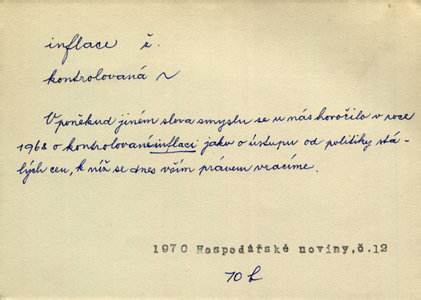 inflace ž.
kontrolovaná ~
V poněkud jiném slova smyslu se u nás hovořilo v roce
1968 o kontrolované inflaci jako o ústupu od politiky stá-
lých cen, k níž se dnes vším právem vracíme.
1970 Hospodářské noviny, č.12
70 b